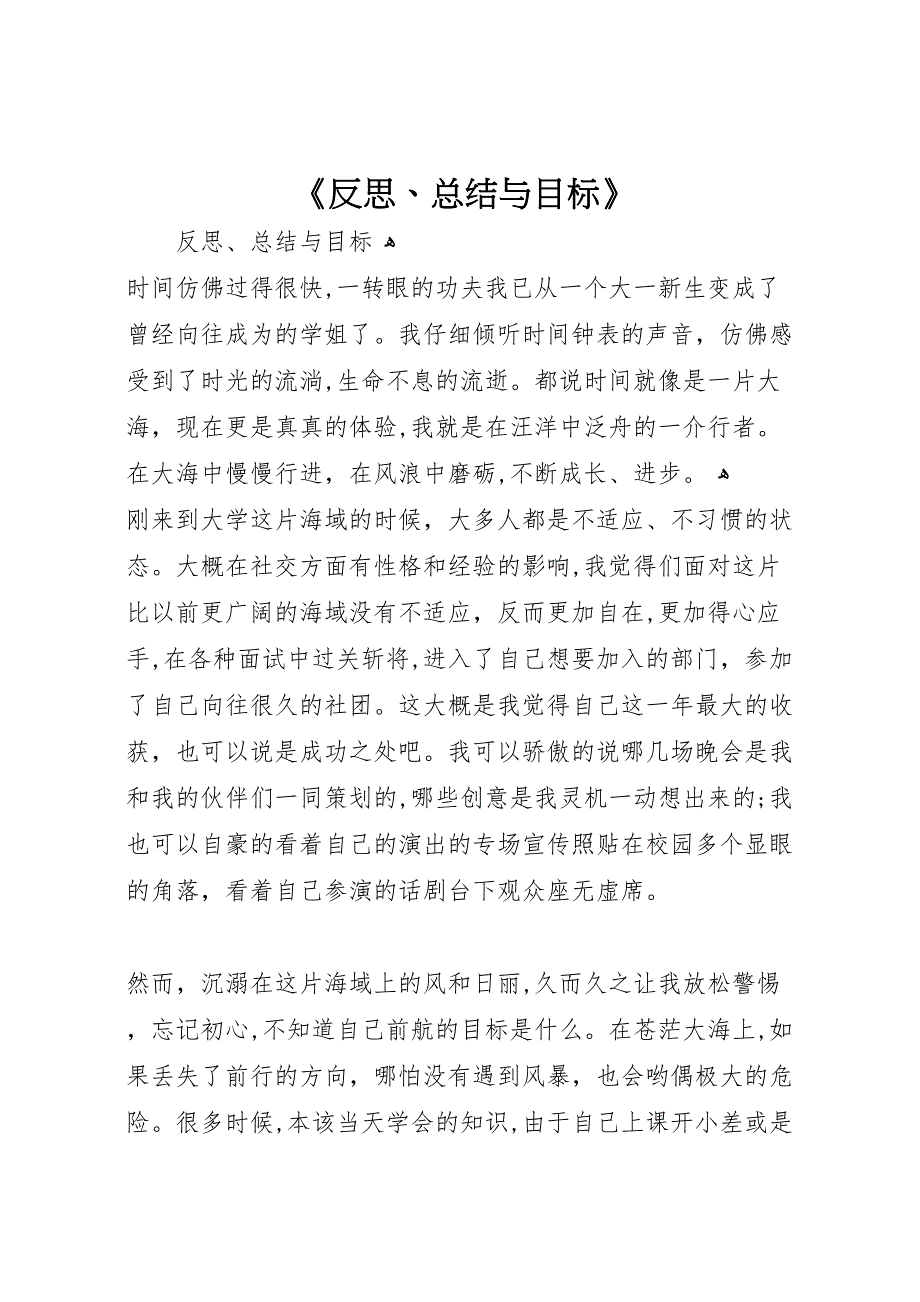 《反思、总结与目标》
反思、总结与目标 ﻫ
时间仿佛过得很快,一转眼的功夫我已从一个大一新生变成了
曾经向往成为的学姐了。我仔细倾听时间钟表的声音，仿佛感
受到了时光的流淌,生命不息的流逝。都说时间就像是一片大
海，现在更是真真的体验,我就是在汪洋中泛舟的一介行者。
在大海中慢慢行进，在风浪中磨砺,不断成长、进步。 ﻫ
刚来到大学这片海域的时候，大多人都是不适应、不习惯的状
态。大概在社交方面有性格和经验的影响,我觉得们面对这片
比以前更广阔的海域没有不适应，反而更加自在,更加得心应
手,在各种面试中过关斩将,进入了自己想要加入的部门，参加
了自己向往很久的社团。这大概是我觉得自己这一年最大的收
获，也可以说是成功之处吧。我可以骄傲的说哪几场晚会是我
和我的伙伴们一同策划的,哪些创意是我灵机一动想出来的;我
也可以自豪的看着自己的演出的专场宣传照贴在校园多个显眼
的角落，看着自己参演的话剧台下观众座无虚席。
然而，沉溺在这片海域上的风和日丽,久而久之让我放松警惕
，忘记初心,不知道自己前航的目标是什么。在苍茫大海上,如
果丢失了前行的方向，哪怕没有遇到风暴，也会哟偶极大的危
险。很多时候,本该当天学会的知识,由于自己上课开小差或是